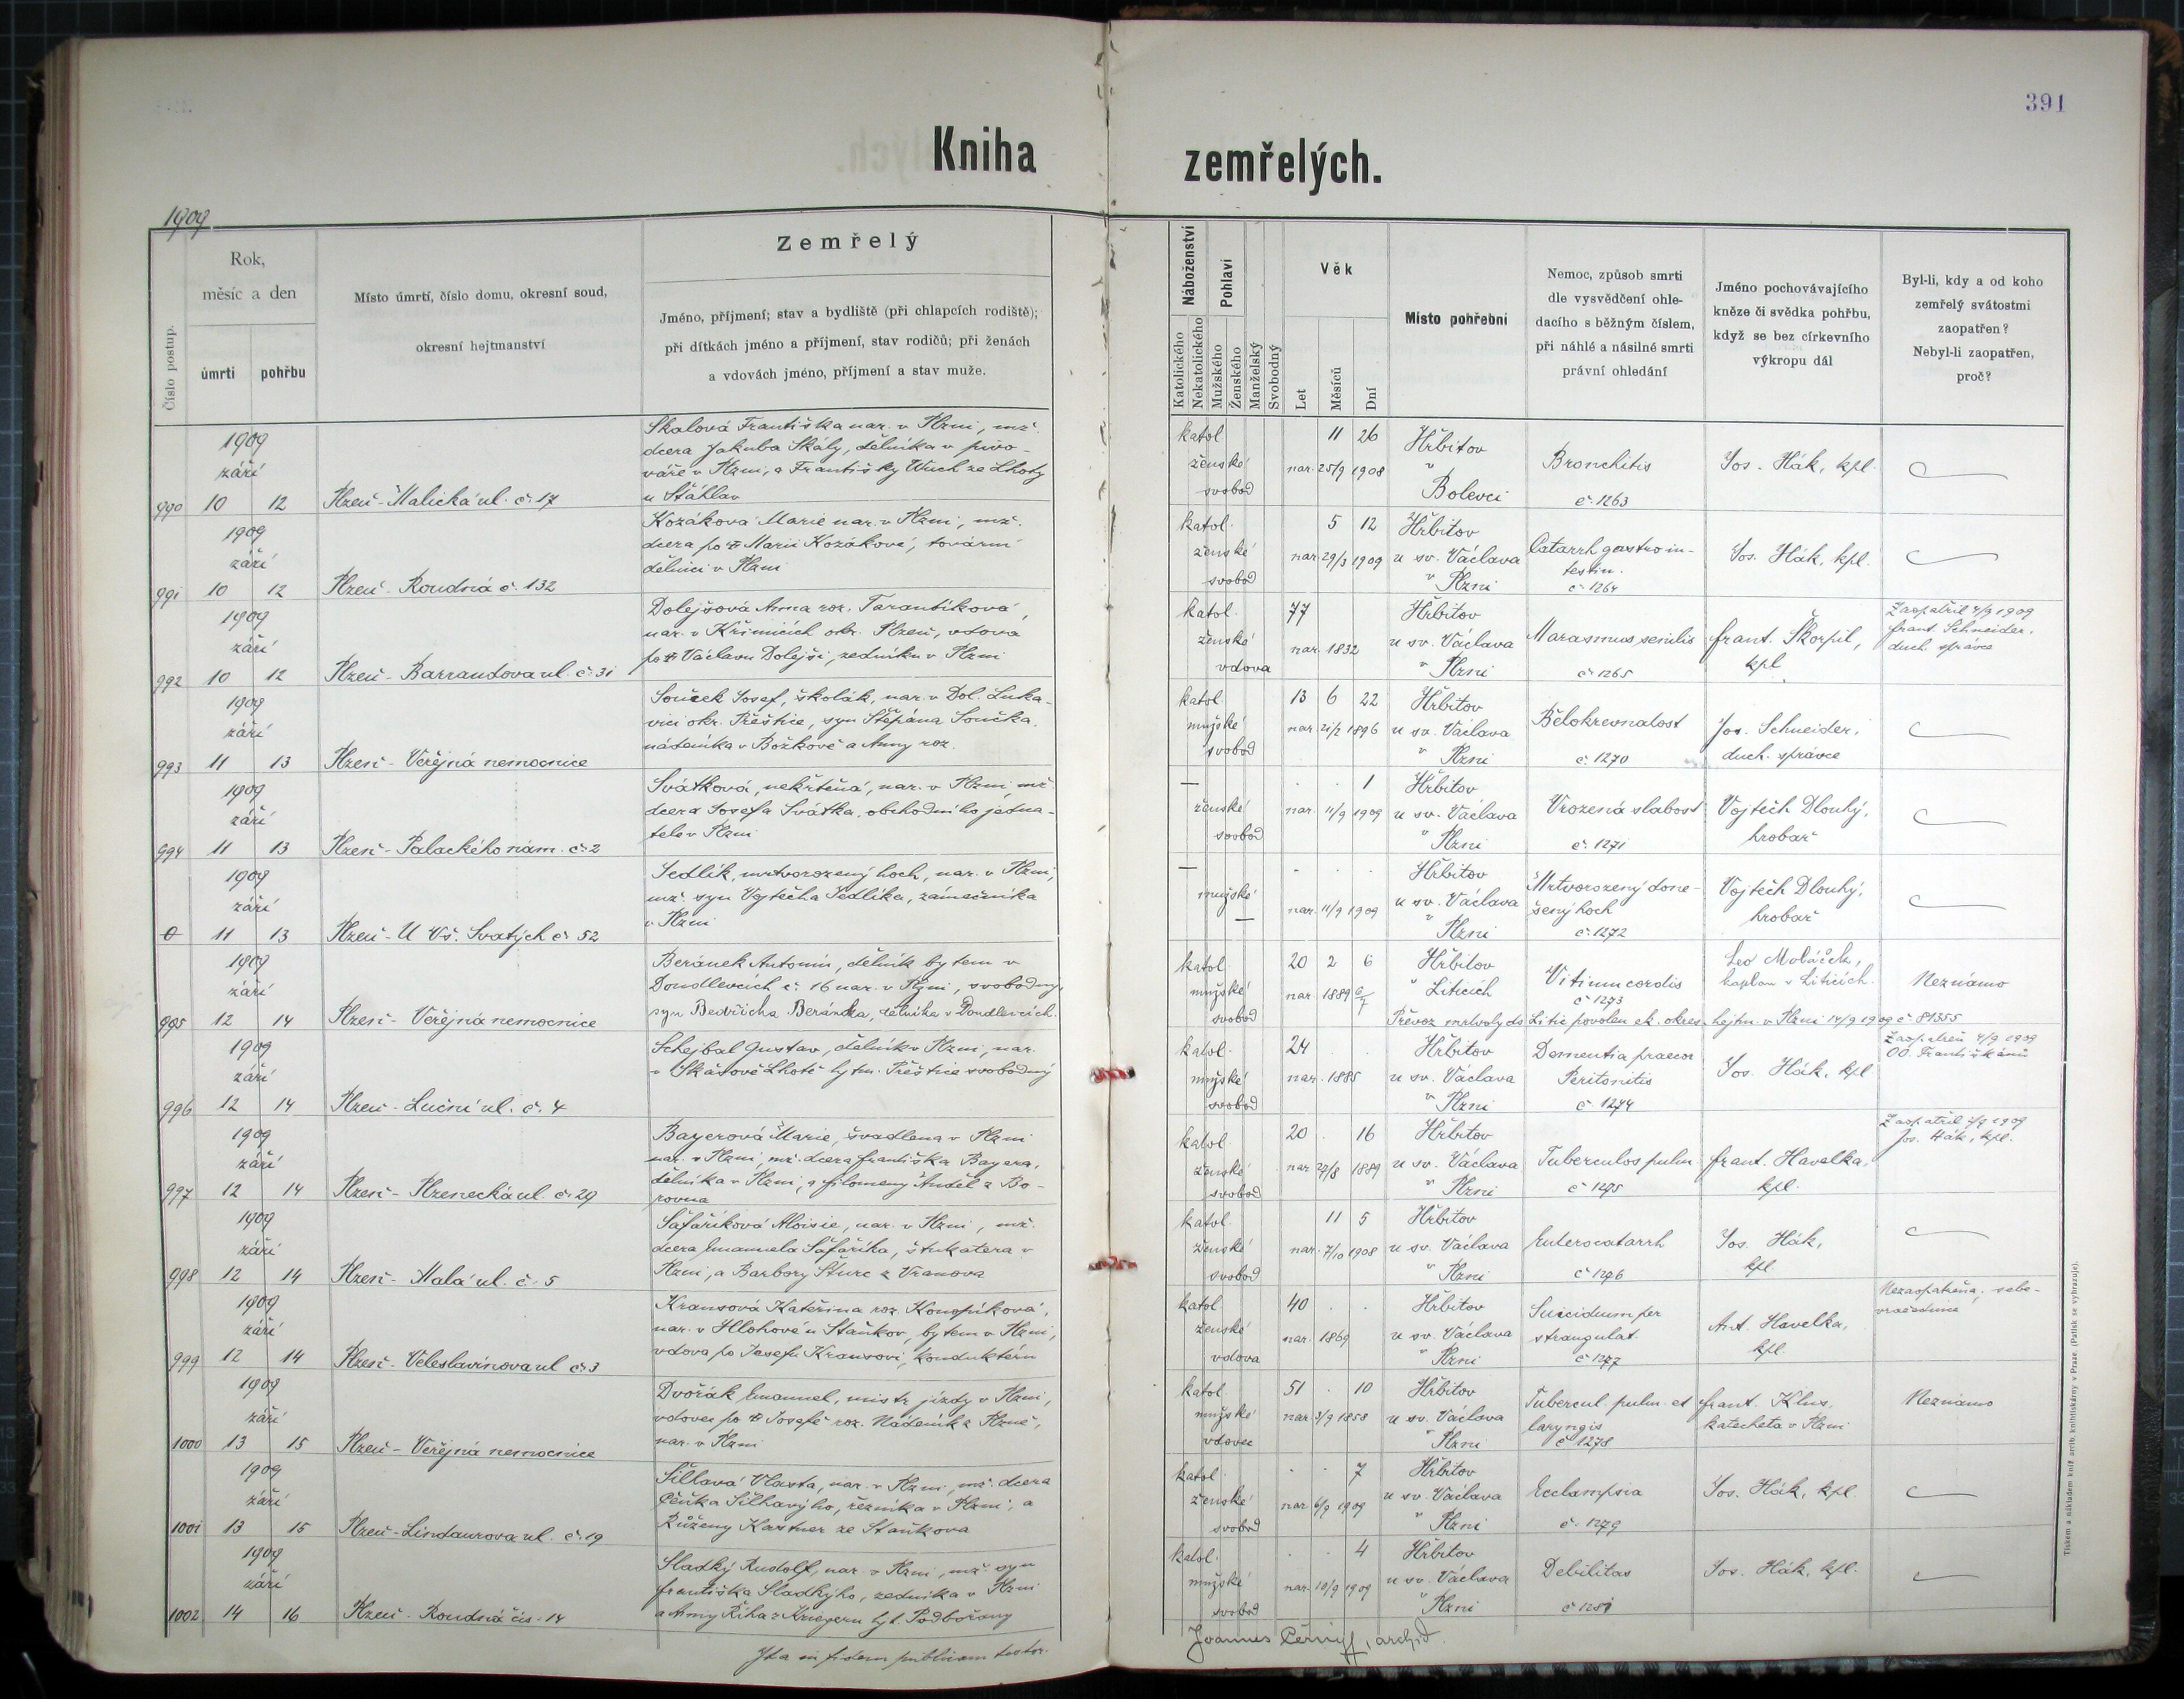 391
Kniha zemřelých.
1909
Číslo postup.
Rok,
měsíc a den
úmrtí
pohřbu
Místo úmrtí, číslo domu, okresní soud,
okresní hejtmanství
Zemřelý
Jméno, příjmení; stav a bydliště (při chlapcích rodiště);
při dítkách jméno a příjmení, stav rodičů; při ženách
a vdovách jméno, příjmení a stav muže.
Náboženství
Katolického
Nekatolického
Pohlaví
Mužského
Ženského
Manželský
Svobodný
Věk
Let
Měsíců
Dní
Místo pohřební
Nemoc, způsob smrti
dle vysvědčení ohle-
dacího s běžným číslem,
při náhlé a násilné smrti
právní ohledání
Jméno pochovávajícího
kněze či svědka pohřbu,
když se bez církevního
výkropu dál
Byl-li, kdy a od koho
zemřelý svátostmi
zaopatřen?
Nebyl-li zaopatřen,
proč?
990
1909
září
10 12
Plzeň - Malická ul. č. 17
Skalová Františka nar. v Plzni, mž.
dcera Jakuba Skály, dělníka v pivo-
váře v Plzni, a Františky Wuch ze Lhoty
u Šťáhlav
katol.
ženské
svobod
11 26
nar. 25/9 1908
Hřbitov
v
Bolevci
Bronchitis
č. 1263
Jos. Hák, kpl.
991
1909
září
10 12
Plzeň - Roudná č. 132
Kozáková Marie nar. v Plzni, mž.
dcera po † Marii Kozákové, tovární
dělnici v Plzni
katol.
ženské
svobod
5 12
nar. 29/3 1909
Hřbitov
u sv. Václava
v Plzni
Catarrh gastroin-
testin.
č. 1264
Jos. Hák, kpl.
992
1909
září
10 12
Plzeň - Barrandova ul. č. 31
Dolejšová Anna roz. Tarantíková,
nar. v Křimicích okr. Plzeň, vdova
po † Václavu Dolejši, zedníku v Plzni
katol.
ženské
vdova
77
nar. 1832
Hřbitov
u sv. Václava
v Plzni
Marasmus senilis
č. 1265
Frant. Škorpil,
kpl.
Zaopatřil 4/9 1909
Frant. Schneider,
duch. správce
993
1909
září
11 13
Plzeň - Veřejná nemocnice
Souček Josef, školák, nar. v Dol. Luka-
vici okr. Přeštice, syn Štěpána Součka,
nádeníka v Božkově a Anny roz.
katol.
mužské
svobod
13 6 22
nar. 21/2 1896
Hřbitov
u sv. Václava
v Plzni
Bělokrevnatost
č. 1270
Jos. Schneider,
duch. správce
994
1909
září
11 13
Plzeň - Palackého nám. č. 2
Svátková, nekřtěná, nar. v Plzni, mž.
dcera Josefa Svátka, obchodního jedna-
tele v Plzni
—
ženské
svobod
1
nar. 11/9 1909
Hřbitov
u sv. Václava
v Plzni
Vrozená slabost
č. 1271
Vojtěch Dlouhý,
hrobař
0
1909
září
11 13
Plzeň - U Vš. Svatých č. 52
Sedlík, mrtvorozený hoch, nar. v Plzni,
mž. syn Vojtěcha Sedlíka, zámečníka
v Plzni
—
mužské
—
nar. 11/9 1909
Hřbitov
u sv. Václava
v Plzni
Mrtvorozený done-
šený hoch
č. 1272
Vojtěch Dlouhý,
hrobař
995
1909
září
12 14
Plzeň - Veřejná nemocnice
Beránek Antonín, dělník bytem v
Doudlevcích č. 16 nar. v Plzni, svobodný,
syn Bedřicha Beránka, dělníka v Doudlevcích.
katol.
mužské
svobod
20 2 6
nar. 1889 6/7
Hřbitov
v Liticích
Vitium cordis
č. 1273
Leo Moláček,
kaplan v Liticích.
Neznámo
Převoz mrtvoly do Litic povolen ck. okres. hejtm. v Plzni 14/9 1909 č. 81355
996
1909
září
12 14
Plzeň - Luční ul. č. 4
Schejbal Gustav, dělník v Plzni, nar.
v Skašově Lhotě hejtm. Přeštice svobodný
katol.
mužské
svobod
24
nar. 1885
Hřbitov
u sv. Václava
v Plzni
Dementia praecox
Peritonitis
č. 1274
Jos. Hák, kpl.
Zaopatřen 4/9 1909
OO. Františkánů
997
1909
září
12 14
Plzeň - Plzenecká ul. č. 29
Bayerová Marie, švadlena v Plzni
nar. v Plzni, mž. dcera Františka Bayera,
dělníka v Plzni, a Filomeny Anděl z Bo-
rovna
katol.
ženské
svobod
20 16
nar. 27/8 1889
Hřbitov
u sv. Václava
v Plzni
Tuberculos pulm
č. 1275
Frant. Havelka,
kpl.
Jos. Hák, kpl.
998
1909
září
12 14
Plzeň - Malá ul. č. 5
Šafaříková Aloisie, nar. v Plzni, mž.
dcera Emanuela Šafaříka, štukatera v
Plzni, a Barbory Šturc z Vranova
katol.
ženské
svobod
11 5
nar. 7/10 1908
Hřbitov
u sv. Václava
v Plzni
Enterocatarrh
č. 1276
Jos. Hák,
kpl.
999
1909
září
12 14
Plzeň - Veleslavínova ul. č. 3
Krausová Kateřina roz. Konopíková,
nar. v Hlohové u Staňkov, bytem v Plzni,
vdova po Josefu Krausovi, konduktéru
katol.
ženské
vdova
40
nar. 1869
Hřbitov
u sv. Václava
v Plzni
Suicidium per
strangulat.
č. 1277
Ant. Havelka,
kpl.
Nezaopatřena, sebe-
vražednice
1000
1909
září
13 15
Plzeň - Veřejná nemocnice
Dvořák Emanuel, mistr jízdy v Plzni,
vdovec po † Josefě roz. Nádeník z Plzně,
nar. v Plzni
katol.
mužské
vdovec
51 10
nar. 3/9 1858
Hřbitov
u sv. Václava
v Plzni
Tubercul. pulm. et
laryngis
č. 1278
Frant. Klus,
katecheta v Plzni
Neznámo
1001
1909
září
13 15
Plzeň - Lindaurova ul. č. 19
Šilhavá Vlasta, nar. v Plzni, mž. dcera
Čeňka Šilhavýho, řezníka v Plzni, a
Růženy Kastner ze Staňkova
katol.
ženské
svobod
7
nar. 6/9 1909
Hřbitov
u sv. Václava
v Plzni
Ecclampsia
č. 1279
Jos. Hák, kpl.
1002
1909
září
14 16
Plzeň - Roudná čís. 14
Sladký Rudolf, nar. v Plzni, mž. syn
Františka Sladkýho, zedníka v Plzni
a Anny Říha z Kriegern hejt. Podbořany
katol.
mužské
svobod
4
nar. 10/9 1909
Hřbitov
u sv. Václava
v Plzni
Debilitas
č. 1281
Jos. Hák, kpl.
Ita in fidem publicam testor.
Joannes Černý, archid.
Tiskem a nákladem kníž. arcib. knihtiskárny v Praze. (Patisk se vyhrazuje).